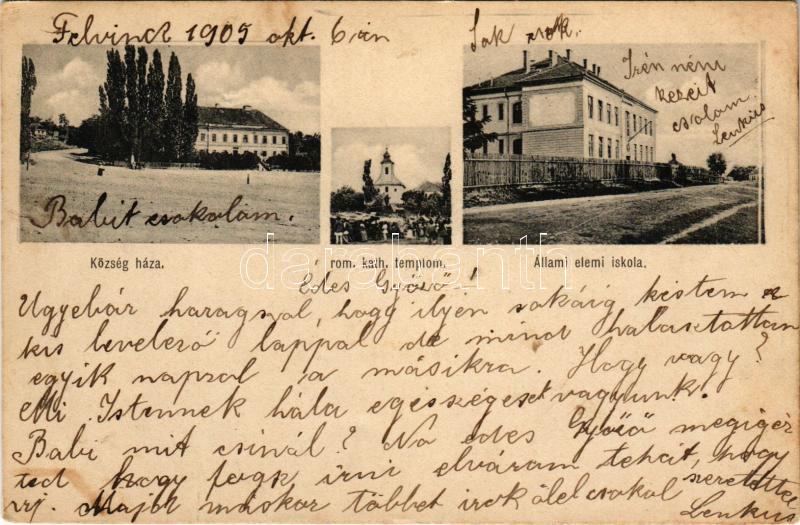 Felvincz 1905 okt. 6-án
Sok csók.
Irén néni
kezeit
csolam
Lenkus
Babit csokolom.
Község háza.
rom. kath. templom.
Állami elemi iskola.
darabanth
Édes Győző!
Ugyebár haragszol, hogy ilyen sokáig késtem a
kis levelező lappal de mind halasztottam
egyik napról a másikra. Hogy vagy?
Mi Istennek hála egészségeset vagyunk.
Babi mit csinál? Na edes Győző megigér
ted hogy fogsz írni elvárom tehát, hogy
irj. Majd máskor többet irok ölel csokol szeretettel
Lenkus